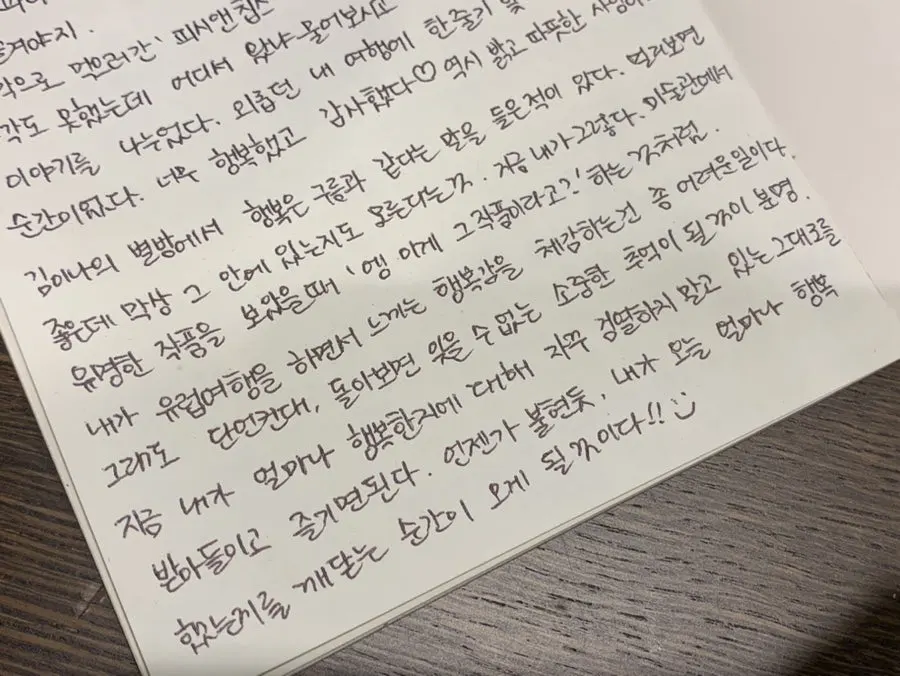 즐겨야지.
으로 먹으러간 '피시앤칩스
각도 못했는데 어디서 왔냐 물어보시고
이야기를 나누었다. 외롭던 내 여행에 한줄기 빛
순간이었다. 너무 행복했고 감사했다♡ 역시 밝고 따뜻한 사람이
김이나의 별밤에서 행복은 구름과 같다는 말을 들은적이 있다. 멀리보면
좋은데 막상 그 안에 있는지도 모른다는것. 지금 내가 그렇다. 미술관에서
유명한 작품을 보았을때 '엥 이게 그 작품이라고?' 하는 것처럼.
내가 유럽여행을 하면서 느끼는 행복감을 체감하는건 좀 어려운일이다.
그래도 단언컨대, 돌아보면 잊을 수 없는 소중한 추억이 될 것이 분명.
지금 내가 얼마나 행복한지에 대해 자꾸 검열하지 말고 있는 그대로를
받아들이고 즐기면된다. 언젠가 불현듯, 내가 오늘 얼마나 행복
했는지를 깨닫는 순간이 오게 될것이다!!